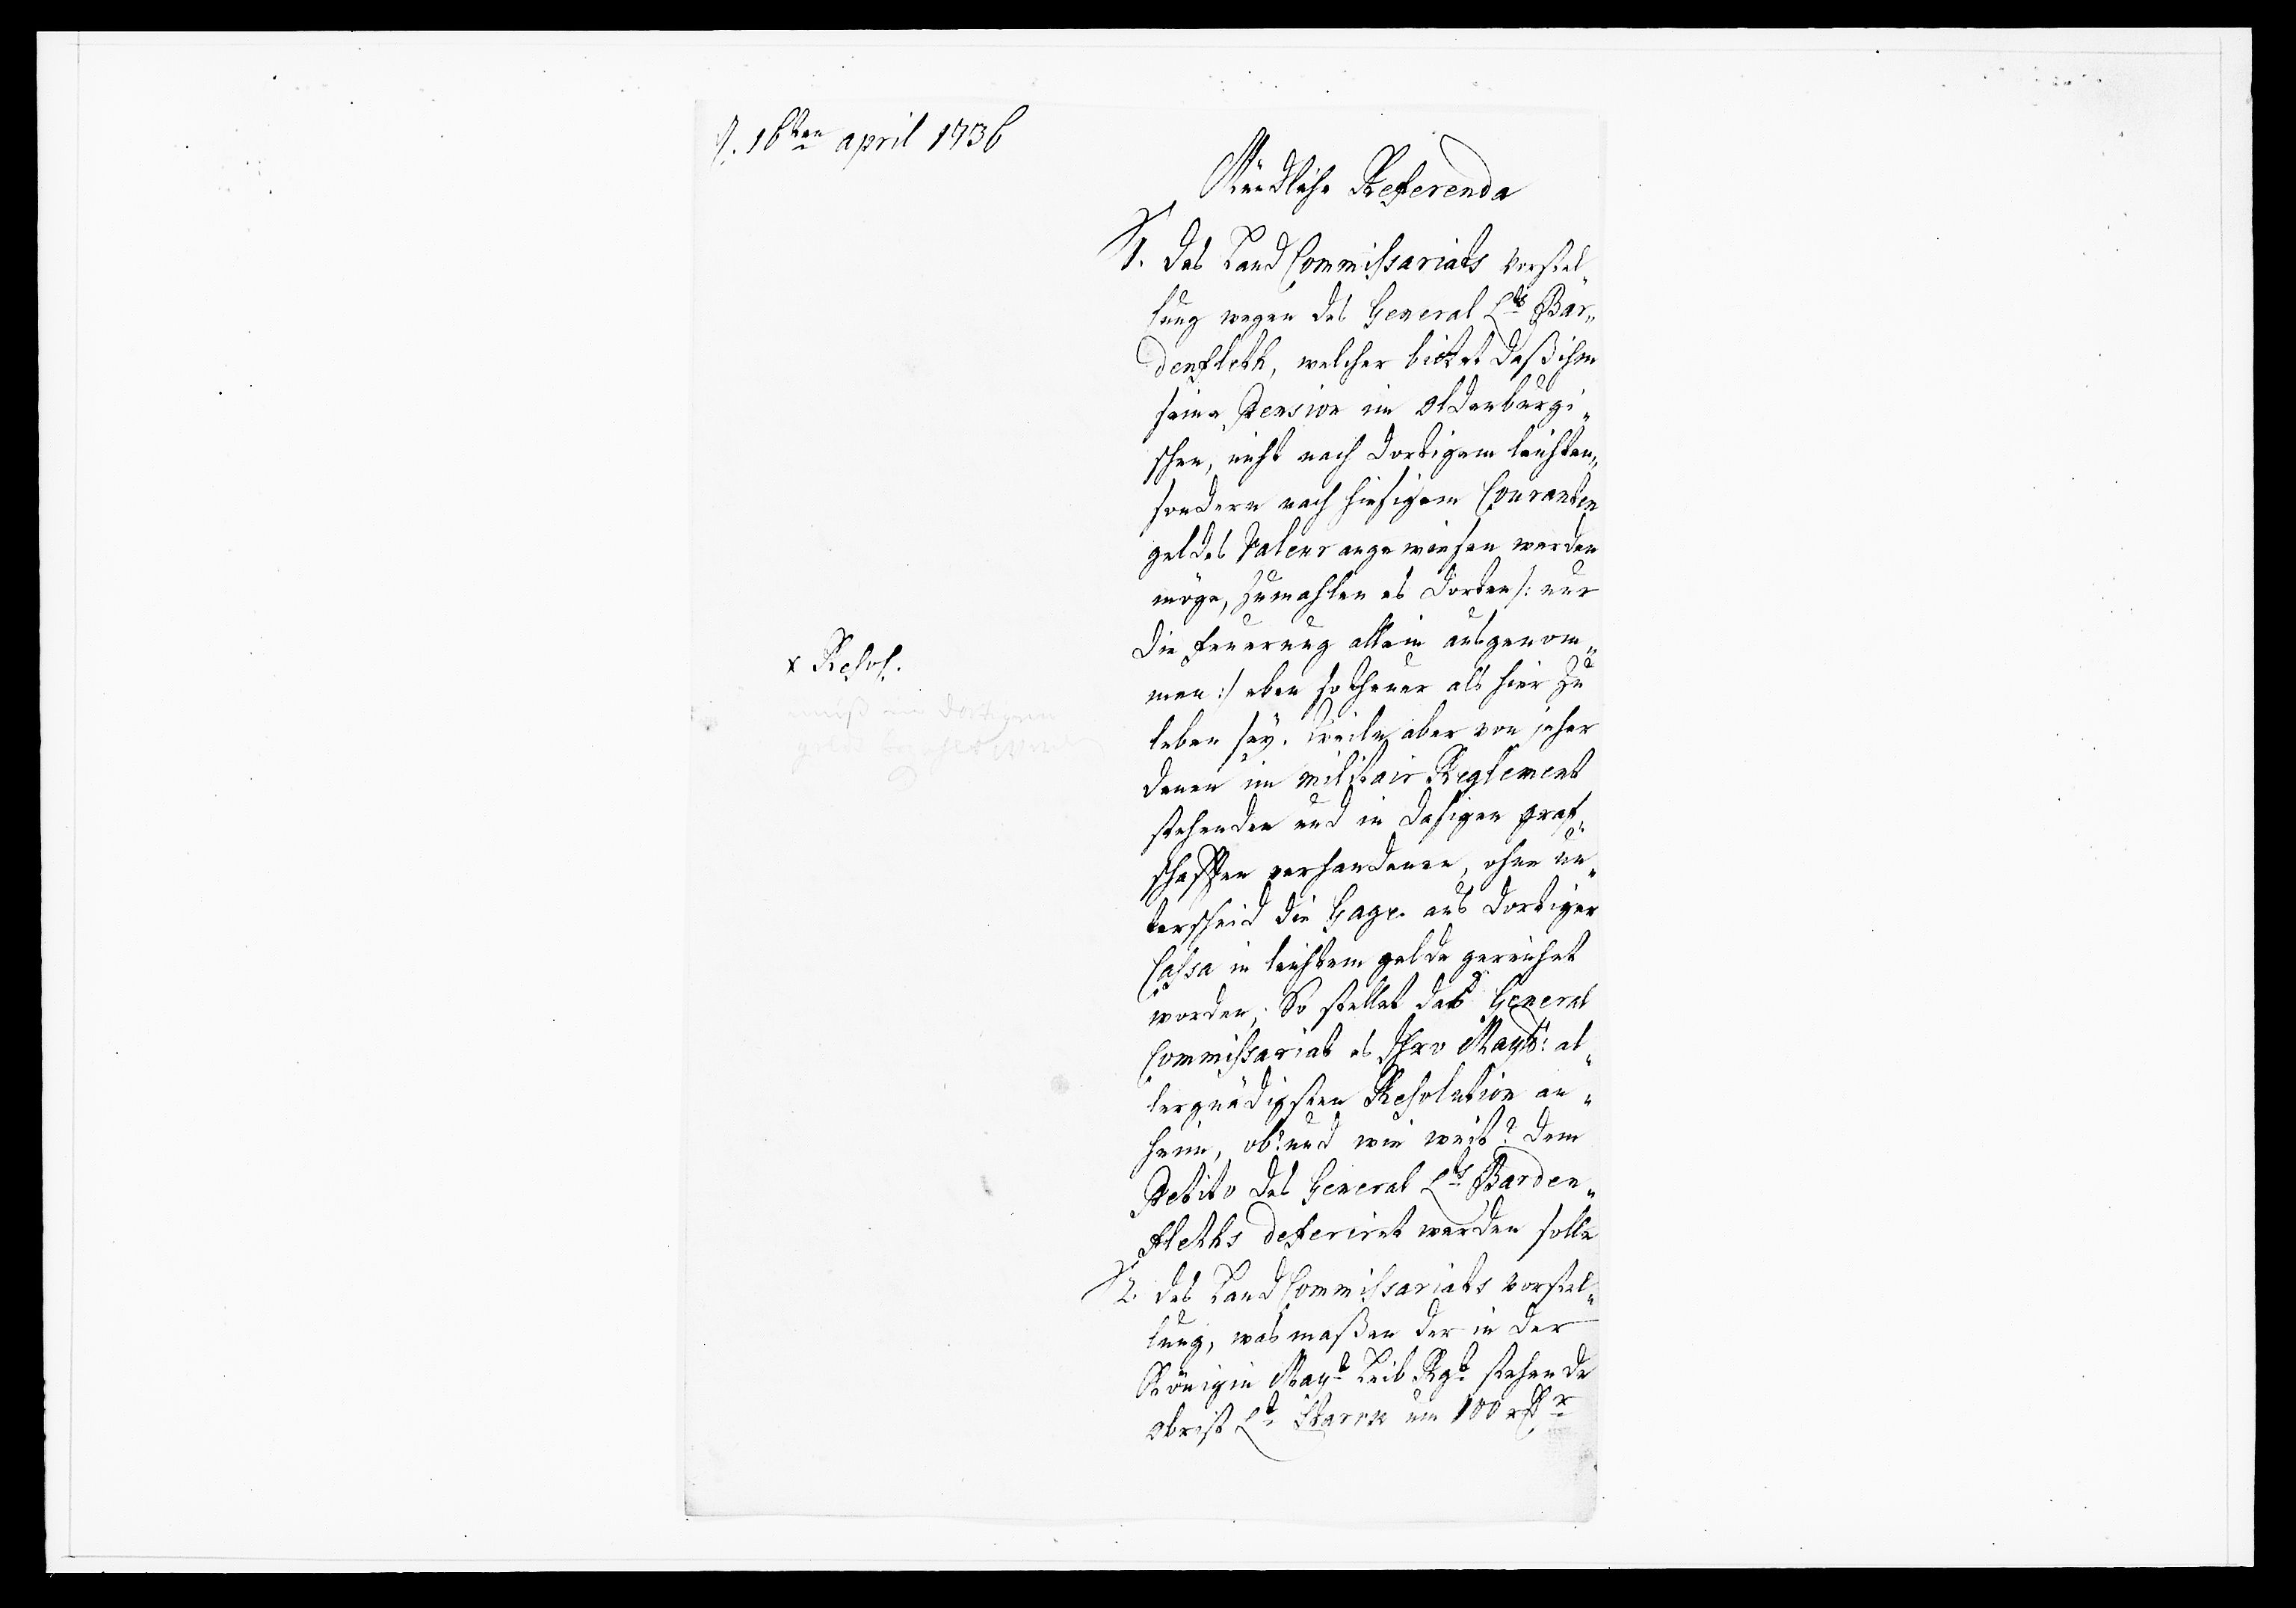 d. 16ten april 1736
Mündliche Referenda
1. des Land Commissariats vorstel„
lung wegen des General Lts Bar„
denfleth, welcher bittet daß ihm
seine Pension im Oldenburgi„
schen, nicht nach dortigem leichten„
sondern nach hiesigem Couranten
geldes Valeur angewiesen werden
möge, zumahlen es dorten /: nur
die feuerung allein ausgenom„
men :/ eben so theuer als hier zu
leben sey. Weile aber von jeher
denen im militair Reglement
stehenden und in dasigen graf„
schafften verhandenen, ohne un„
terscheid die Gage aus dortiger
Cassa in leichtem gelde gereichet
worden; So stellet das General
Commissariat es Ihro Maytt: al„
lergnädigsten Resolution an„
heim, ob? und wie weit? dem
Petito des General Lts Barden„
fleths deferiret werden solle
2. des Land Commissariats vorstel„
lung, was maßen der in der
Königin Maytt Leib Rgt stehende
obrist Lt Starck um 100 rthr
x Resol.
muß in dortigem
gelde bezahlt werden